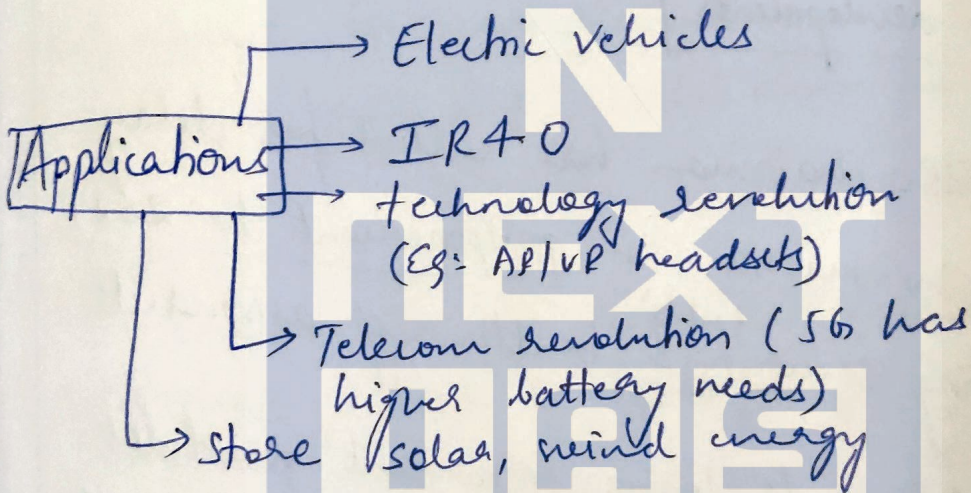 Electric vehicles
Applications
IR 4.0
technology revolution
(Eg: AR/VR headsets)
Telecom revolution (5G has
higher battery needs)
store solar, wind energy
N
NEXT
IAS